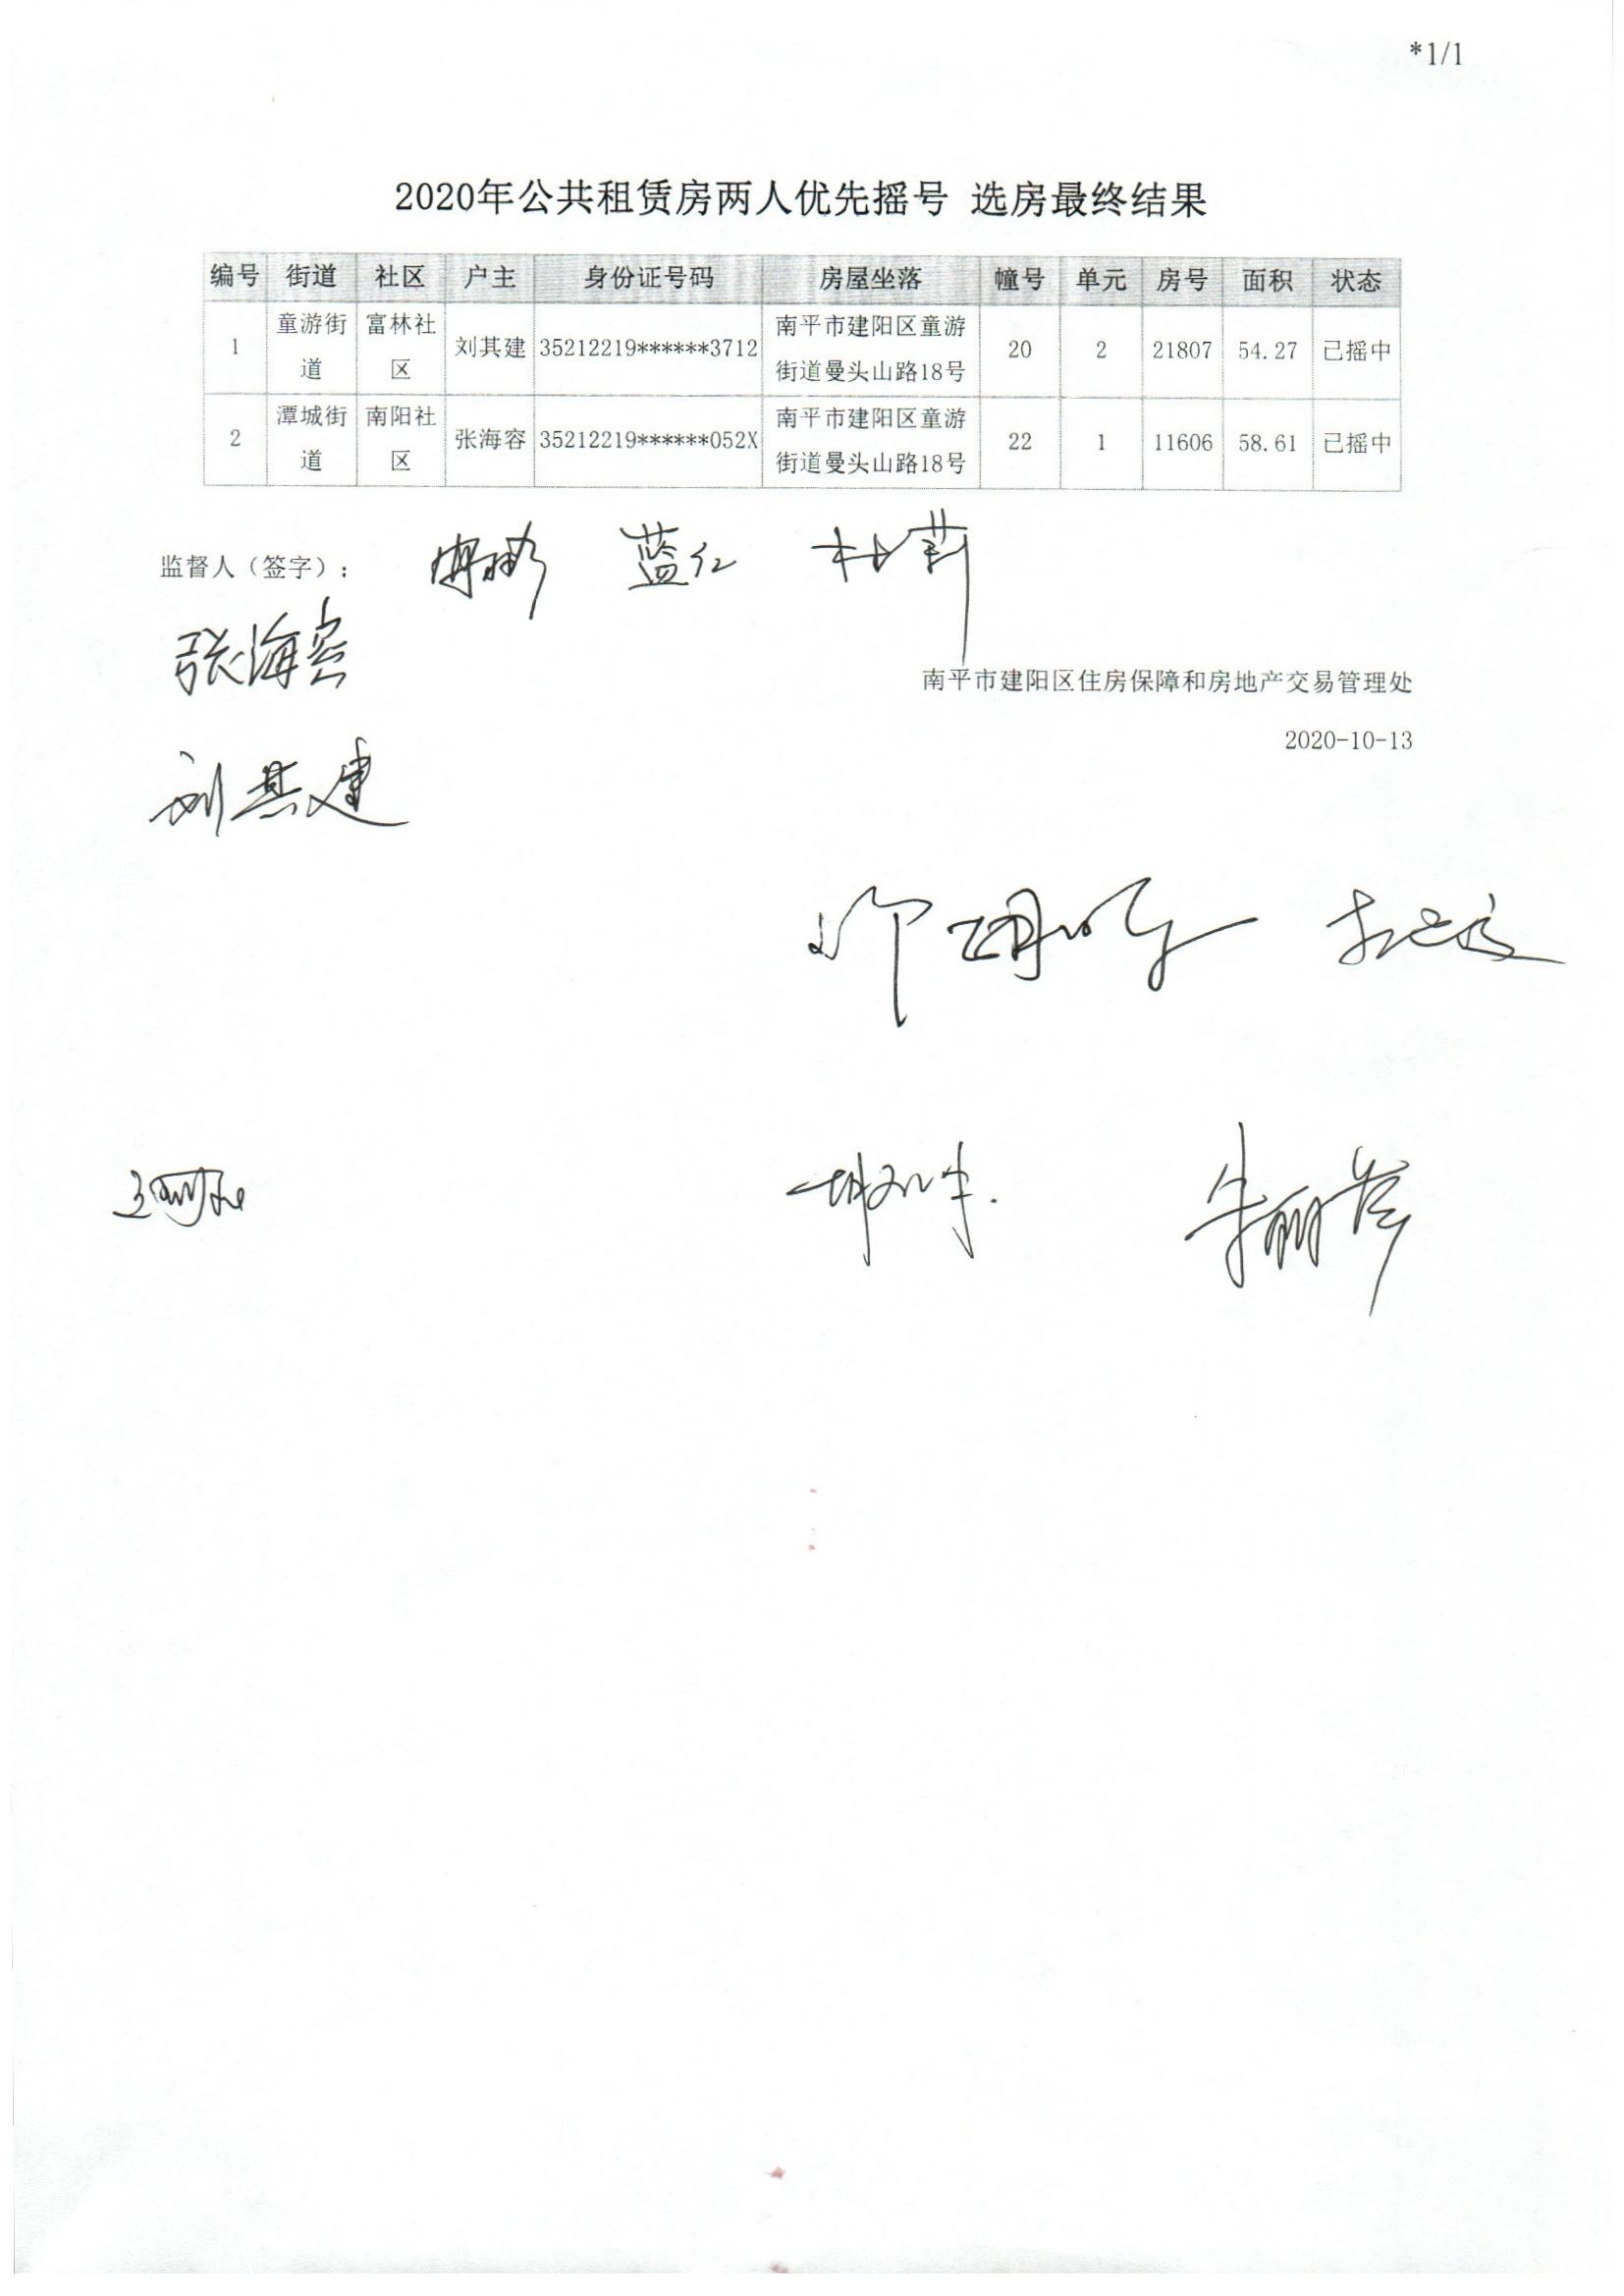 *1/1
2020年公共租赁房两人优先摇号 选房最终结果
编号 街道 社区 户主 身份证号码 房屋坐落 幢号 单元 房号 面积 状态
1 童游街道 富林社区 刘其建 35212219******3712 南平市建阳区童游街道曼头山路18号 20 2 21807 54.27 已摇中
2 潭城街道 南阳社区 张海容 35212219******052X 南平市建阳区童游街道曼头山路18号 22 1 11606 58.61 已摇中
监督人（签字）： 蓝仁 杜莉
张海容
南平市建阳区住房保障和房地产交易管理处
2020-10-13
刘其建